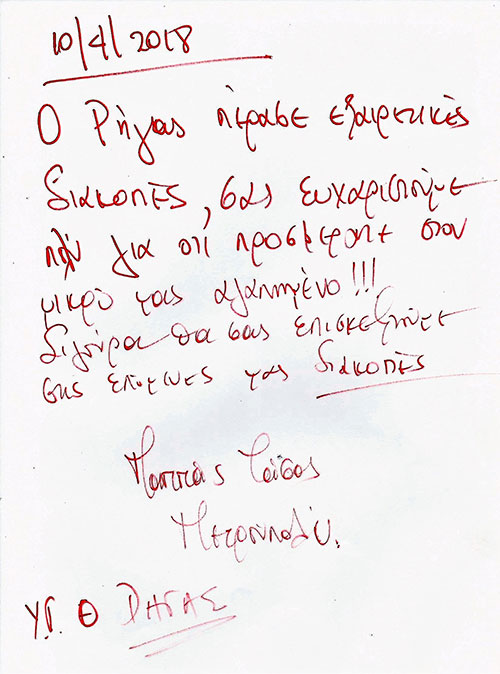 10/4/2018
Ο Ρήγας πέρασε εξαιρετικές
διακοπές, σας ευχαριστούμε
πολύ για ότι προσφέρατε στον
μικρό μας αγαπημένο!!!
Σιγουρα θα σας επισκεφτούμε
στις επόμενες μας διακοπές
Παππάς
Υ.Γ. Ο ΡΗΓΑΣ